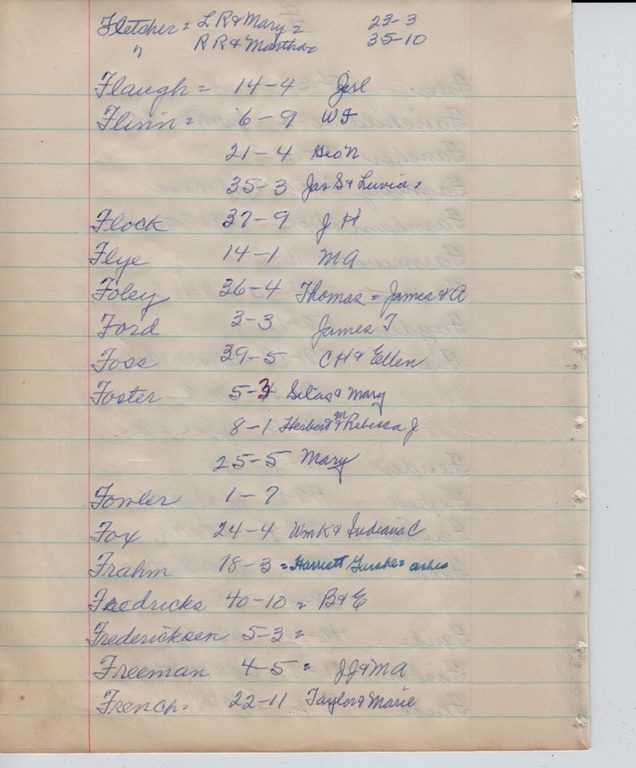 Fletcher = L R & Mary = 23-3
" R R & Martha = 35-10
Flaugh = 14-4 Jerl
Flinn = 6-9 W F
21-4 Geo N
35-3 Jas S & Luvia =
Flock 37-9 J H
Flye 14-1 M A
Foley 36-4 Thomas = James & A
Ford 3-3 James T
Foss 39-5 C H & Ellen
Foster 5-3 Silas & Mary
8-1 Herbert M & Rebecca J
25-5 Mary
Fowler 1-7
Fox 24-4 Wm K & Indiana C
Frahm 18-3 = Harriett = ashes
Fredricks 40-10 = B & E
Fredericksen 5-3 =
Freeman 4-5 = J J & M A
French = 22-11 Taylor & Marie